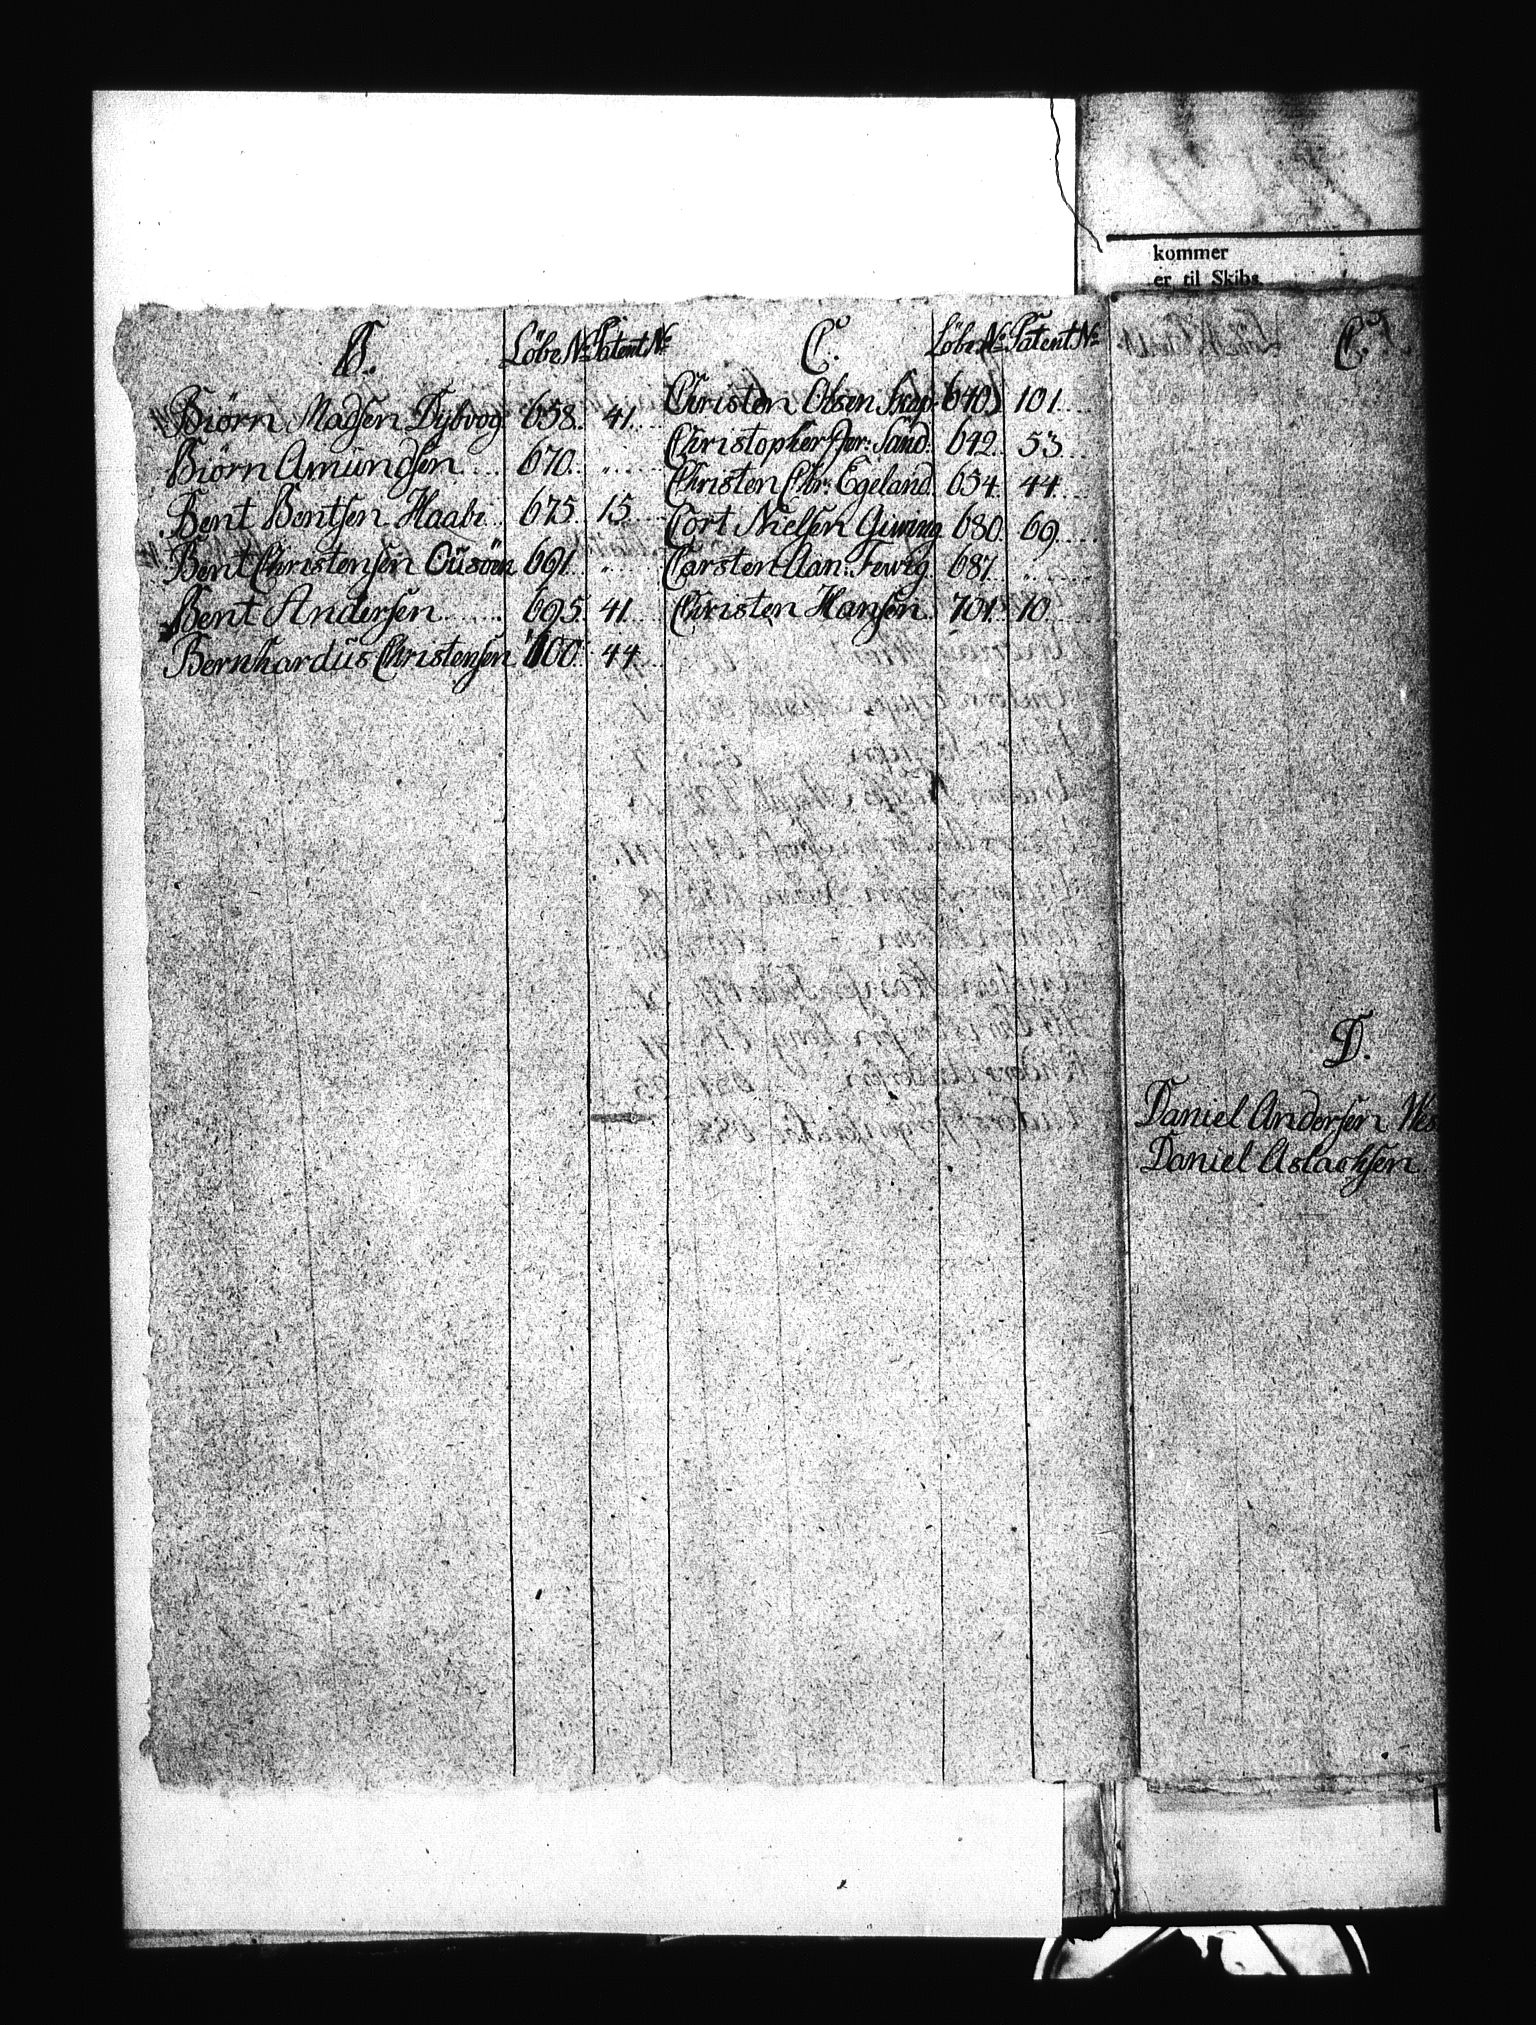 B. Löbe No Patent No
Biörn Madsen Dybvog 658. 41.
Biörn Amundsen 670. "
Bent Bentsen Haabi 675. 15
Bent Christensen Ousöen 691 "
Bent Andersen 695. 41
Bernhardus Christensen 700. 44
C. Löbe No Patent No
Christen Olsen 640 101
Christopher Jer: Sand. 642 53
Christen Chr: Egeland 654 44
Cort Nielsen Giving 680 69
Carsten Aan: Fewig 687 "
Christen Hansen 701. 10
kommer
er til Skibs
C.
D.
Daniel Andersen Wes
Daniel Aslachsen